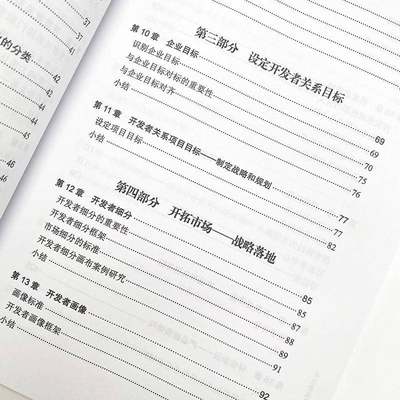 37
37
的分类
41
42
42
44
45
46
46
第三部分 设定开发者关系目标
第10章 企业目标 69
识别企业目标 69
与企业目标对标的重要性 70
与企业目标对齐 75
小结 76
第11章 开发者关系项目目标——制定战略和规划 77
设定项目目标 77
小结 82
第四部分 开拓市场——战略落地
第12章 开发者细分 85
开发者细分的重要性 85
开发者细分框架 87
市场细分的标准 88
开发者细分画布案例研究 89
小结 91
第13章 开发者画像 92
画像标准
开发者画像框架
小结